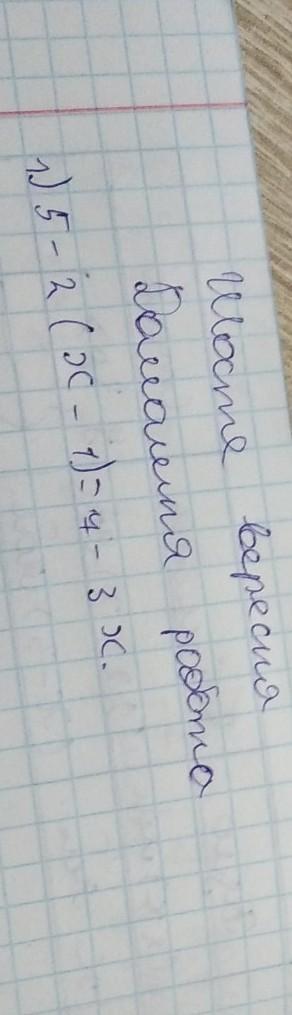 Шосте вересня
Домашня робота
1) 5 - 2 (x - 1) = 4 - 3x.